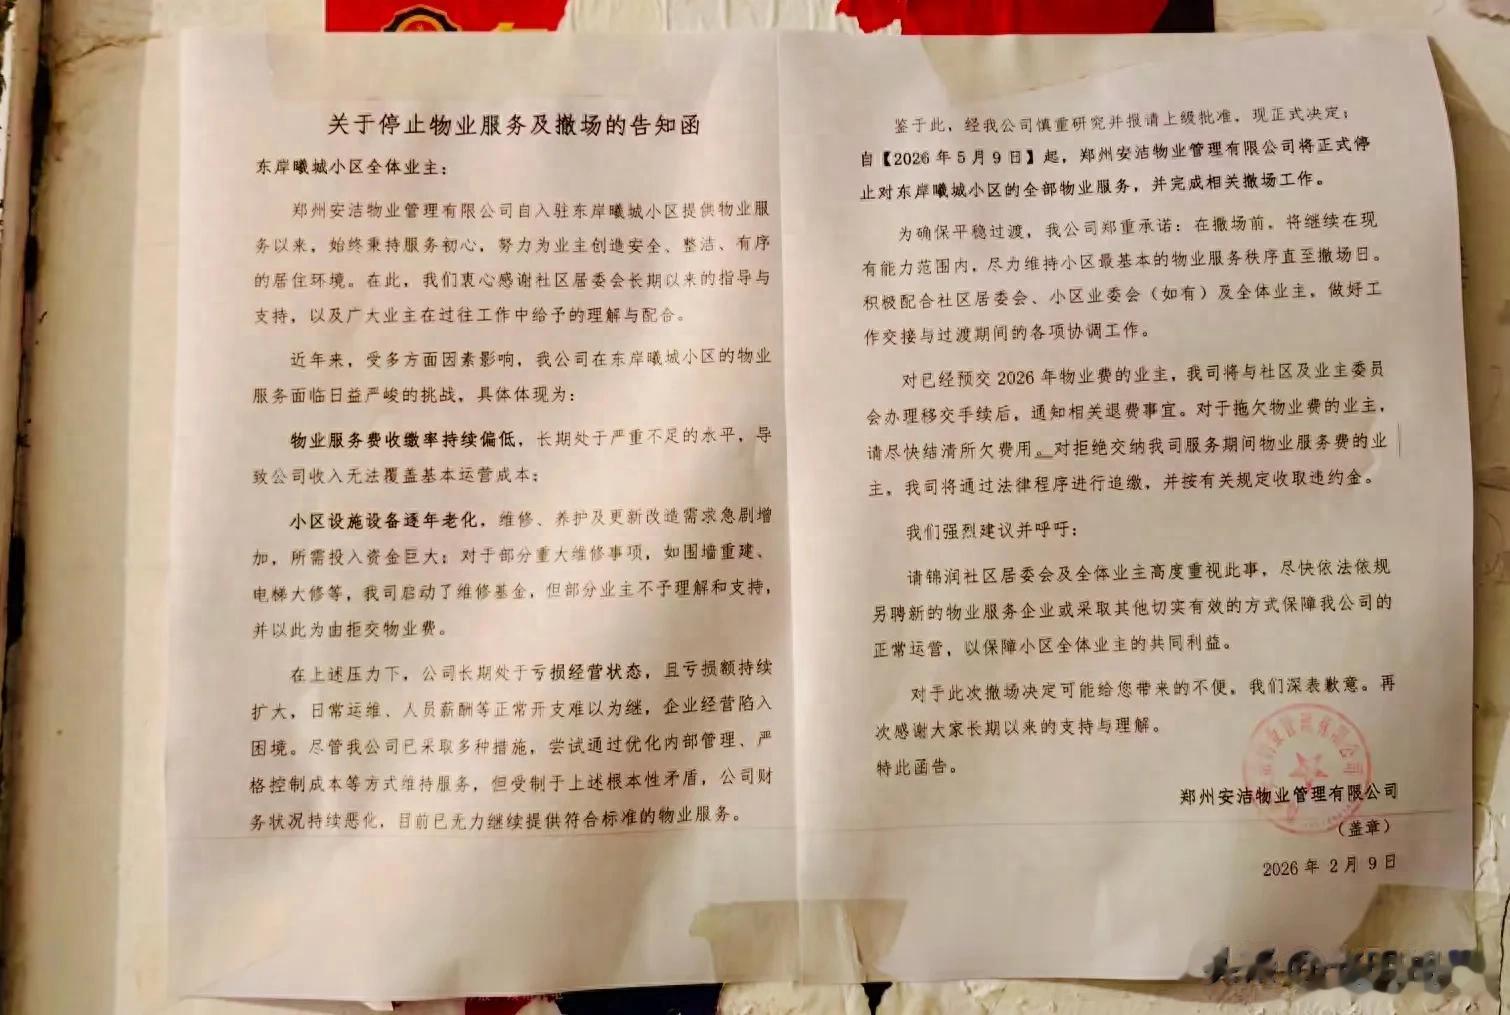 关于停止物业服务及撤场的告知函
东岸曦城小区全体业主：
郑州安洁物业管理有限公司自入驻东岸曦城小区提供物业服
务以来，始终秉持服务初心，努力为业主创造安全、整洁、有序
的居住环境。在此，我们衷心感谢社区居委会长期以来的指导与
支持，以及广大业主在过往工作中给予的理解与配合。
近年来，受多方面因素影响，我公司在东岸曦城小区的物业
服务面临日益严峻的挑战，具体体现为：
物业服务费收缴率持续偏低，长期处于严重不足的水平，导
致公司收入无法覆盖基本运营成本；
小区设施设备逐年老化，维修、养护及更新改造需求急剧增
加，所需投入资金巨大；对于部分重大维修事项，如围墙重建、
电梯大修等，我司启动了维修基金，但部分业主不予理解和支持，
并以此为由拒交物业费。
在上述压力下，公司长期处于亏损经营状态，且亏损额持续
扩大，日常运维、人员薪酬等正常开支难以为继，企业经营陷入
困境。尽管我公司已采取多种措施，尝试通过优化内部管理、严
格控制成本等方式维持服务，但受制于上述根本性矛盾，公司财
务状况持续恶化，目前已无力继续提供符合标准的物业服务。
鉴于此，经我公司慎重研究并报请上级批准，现正式决定：
自【2026年5月9日】起，郑州安洁物业管理有限公司将正式停
止对东岸曦城小区的全部物业服务，并完成相关撤场工作。
为确保平稳过渡，我公司郑重承诺：在撤场前，将继续在现
有能力范围内，尽力维持小区最基本的物业服务秩序直至撤场日。
积极配合社区居委会、小区业委会（如有）及全体业主，做好工
作交接与过渡期间的各项协调工作。
对已经预交2026年物业费的业主，我司将与社区及业主委员
会办理移交手续后，通知相关退费事宜。对于拖欠物业费的业主，
请尽快结清所欠费用。对拒绝交纳我司服务期间物业服务费的业
主，我司将通过法律程序进行追缴，并按有关规定收取违约金。
我们强烈建议并呼吁：
请锦润社区居委会及全体业主高度重视此事，尽快依法依规
另聘新的物业服务企业或采取其他切实有效的方式保障我公司的
正常运营，以保障小区全体业主的共同利益。
对于此次撤场决定可能给您带来的不便，我们深表歉意。再
次感谢大家长期以来的支持与理解。
特此函告。
郑州安洁物业管理有限公司
（盖章）
2026年2月9日